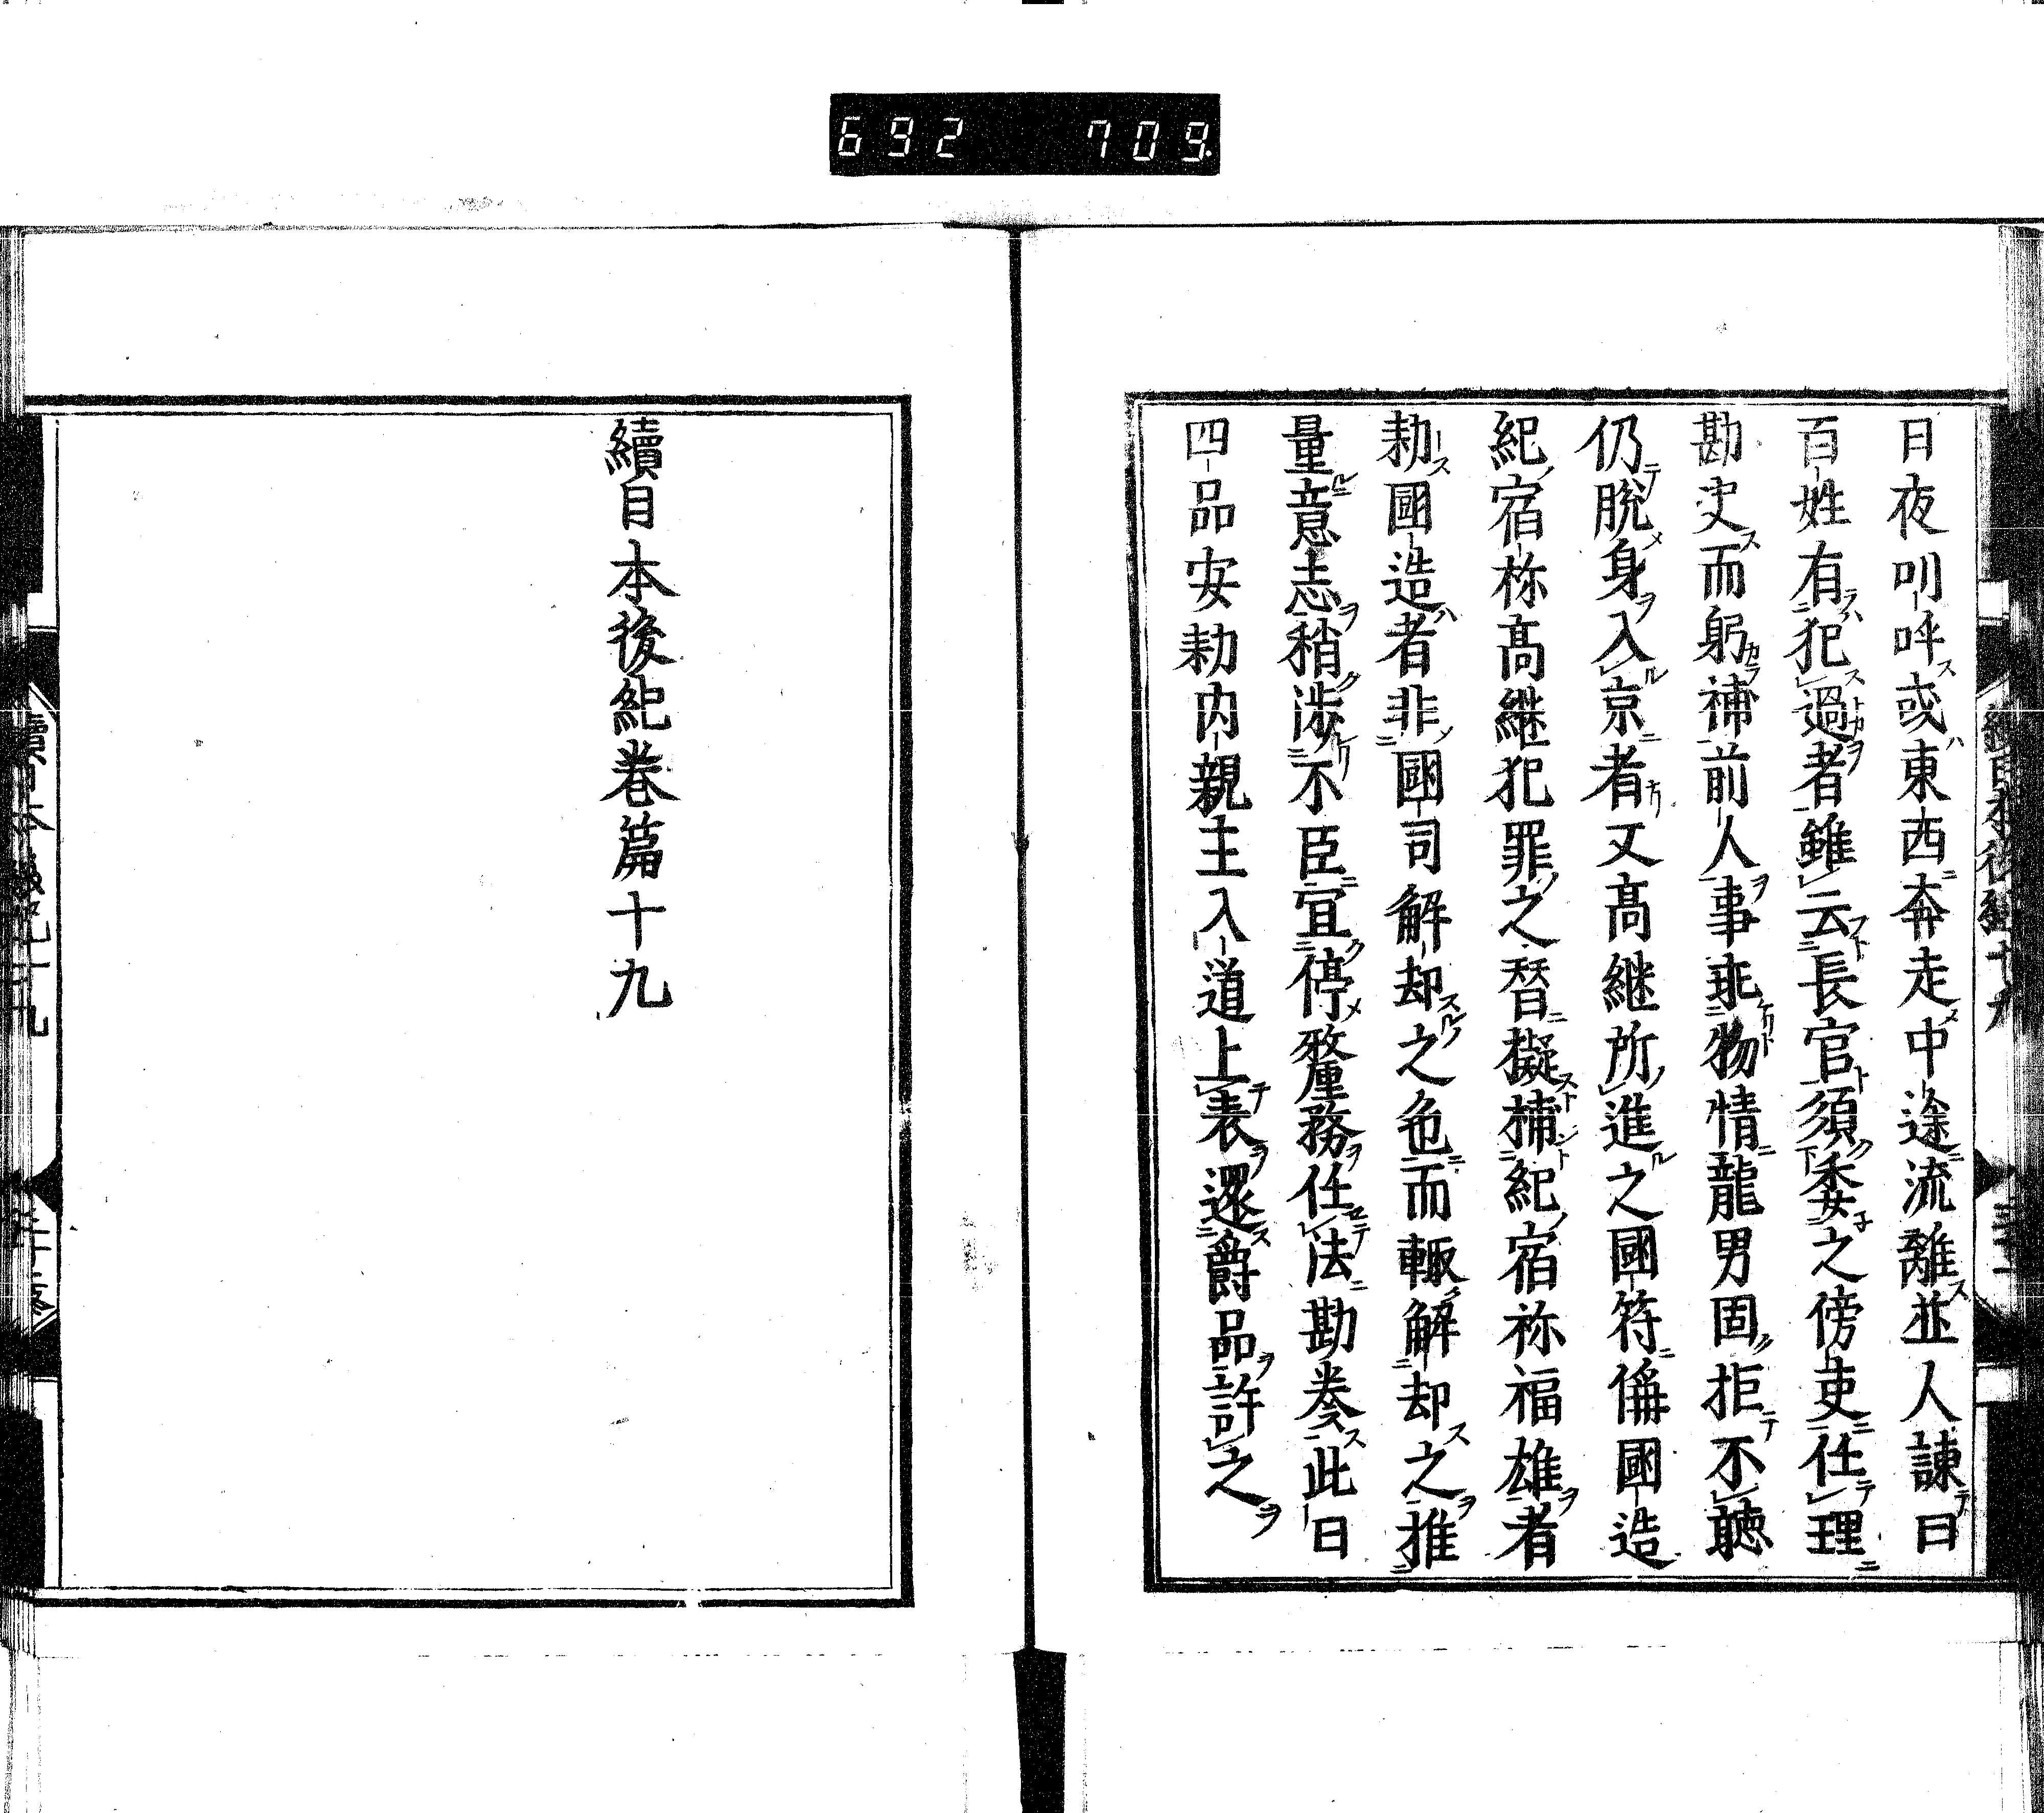 692 709
日夜叫呼或東西奔走中途流離並人諌曰
百姓有犯過者雖云長官須委之傍吏任理
勘㝎而躬補前人事乖物情龍男固拒不聴
仍脱身入京者又髙継所進之國符偁國造
紀宿祢髙継犯罪之替擬補紀宿祢福雄者
勅國造者非國司解却之色而輙解却之推
量意志稍渉不臣宜停釐務任法勘奏此日
四品安勅内親王入道上表還爵品許之
續日本後紀巻篇十九